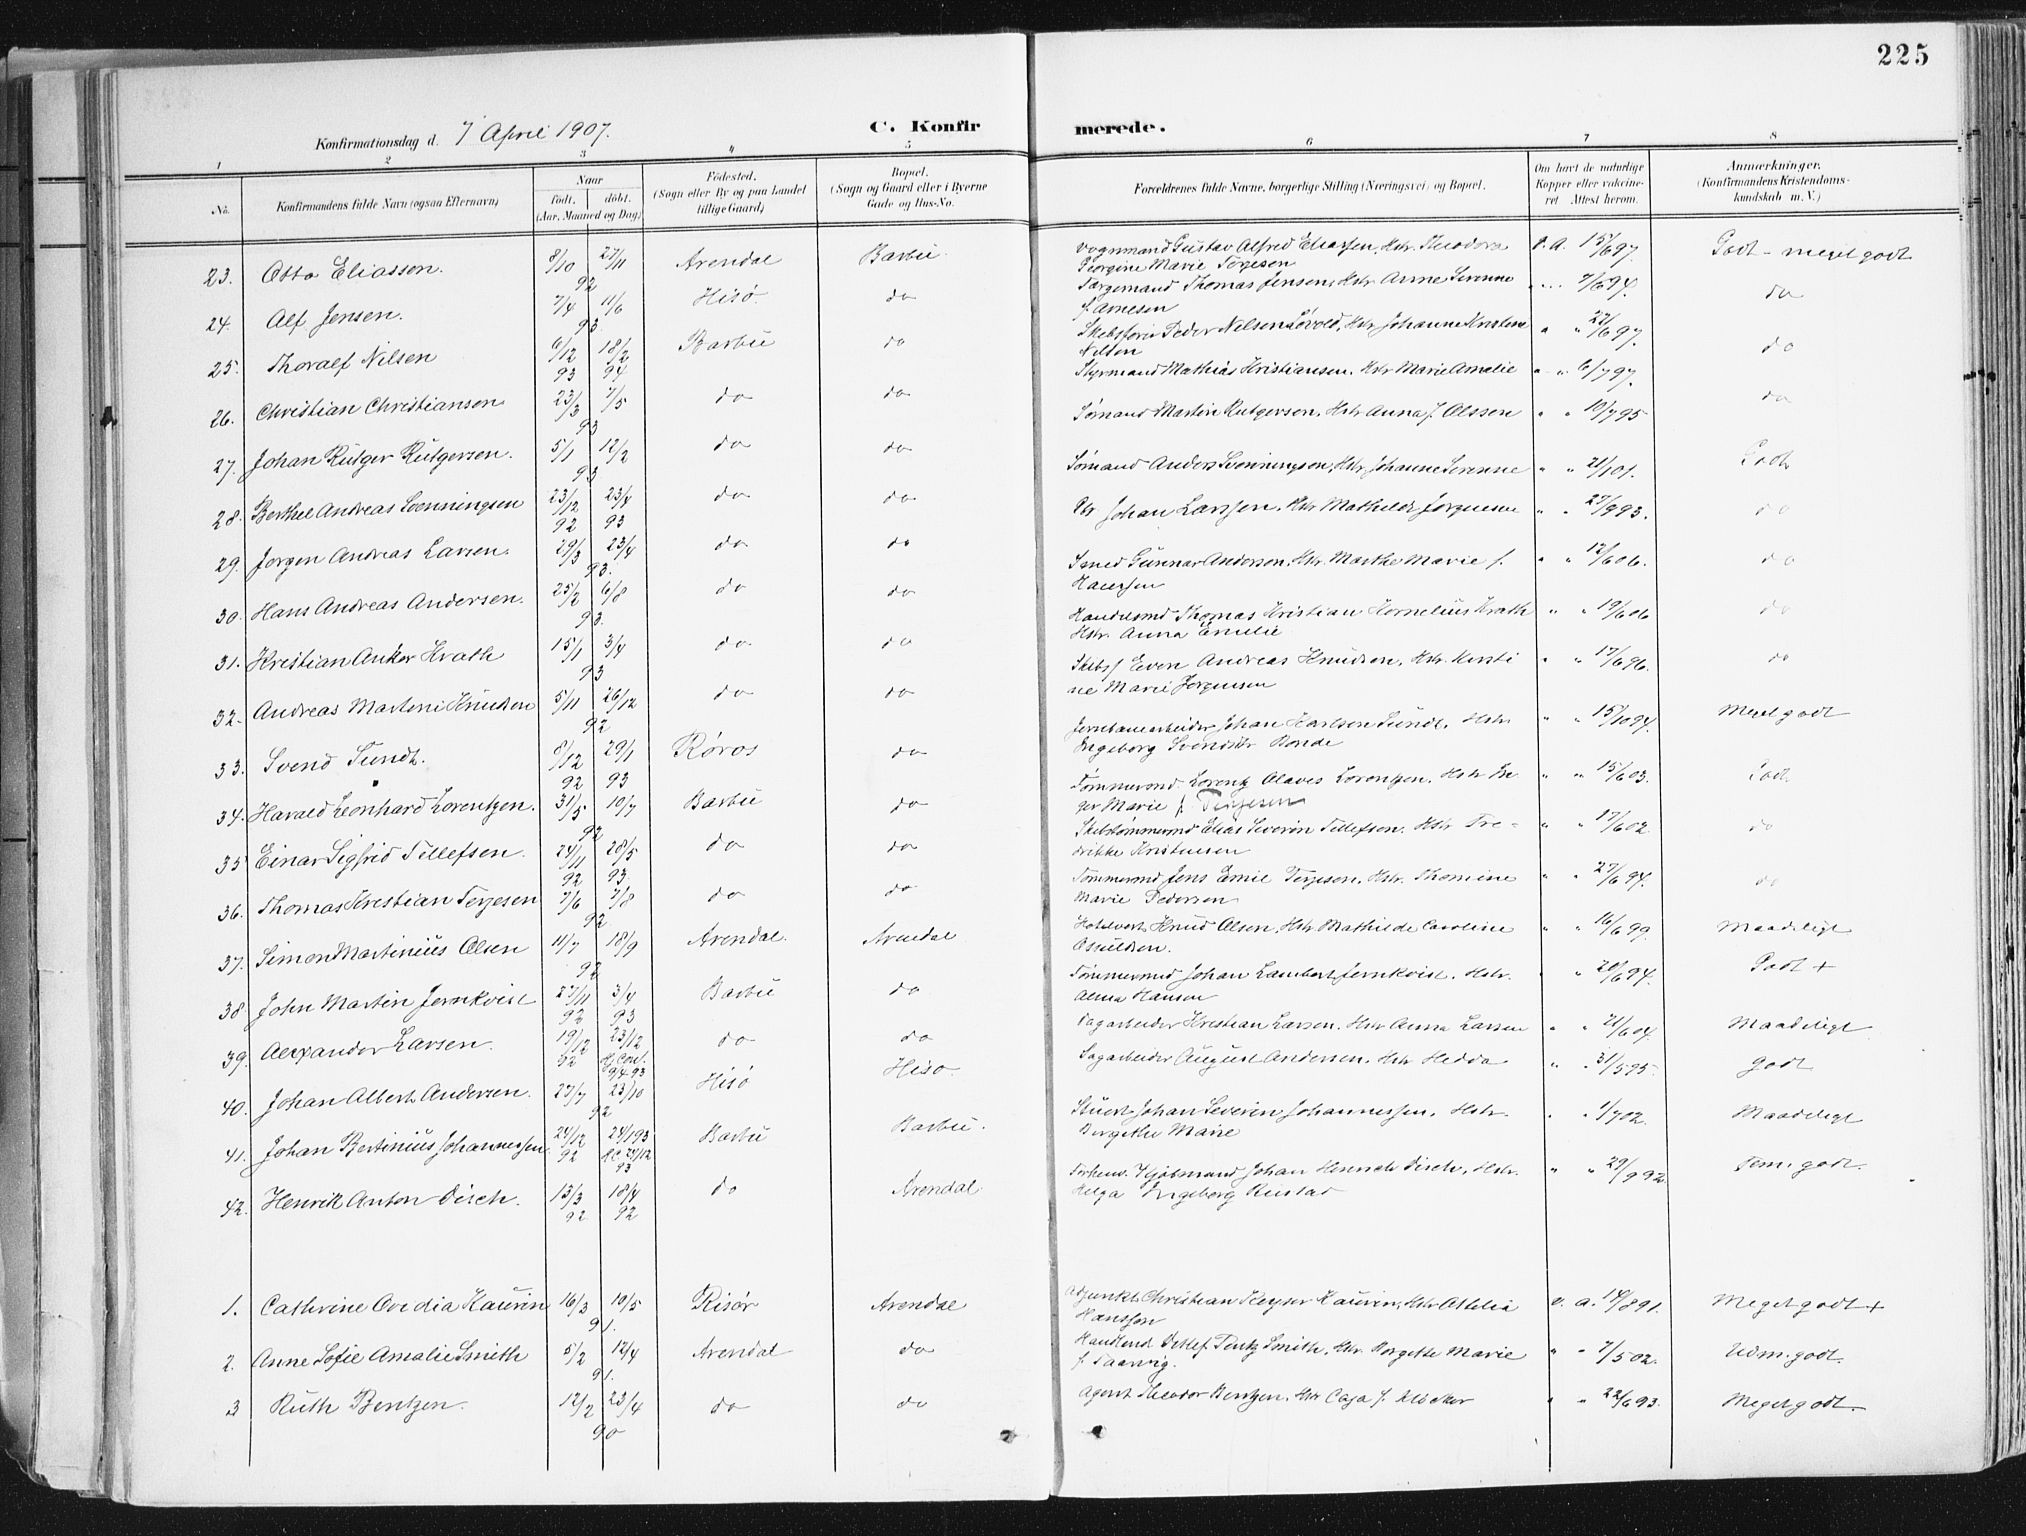 225
Konfirmationsdag d. 7 April 1907. C. Konfirmerede.
1 2 3 4 5 6 7 8
No. Konfirmandens fulde Navn (ogsaa Efternavn) Naar födt. döbt. (Aar, Maaned og Dag) Födested. (Sogn eller By og paa Landet tillige Gaard) Bopæl. (Sogn og Gaard eller i Byerne Gade og Hus-No. Forældrenes fulde Navne, borgerlige Stilling (Næringsvei) og Bopæl. Om havt de naturlige Kopper eller vakcineret Attest herom. Anmærkninger. (Konfirmandens Kristendomskundskab m. V.)
23. Otto Eliassen. 8/10 27/11 92 Arendal Barbu Vognmand Gustav Alfred Eliassen, Hstr. Theodora Georgine Marie Terjesen v. a. 15/6 97. Godt - meget godt
24. Alf Jensen. 7/4 11/6 93 Hisö do Færgemand Thomas Jensen, Hstr Anne Serenne f. Arnesen 7/6 94. do
25. Thoralf Nilsen 6/12 93 18/2 94 Barbu do Skibsfører Peder Nilsen Løvold, Hstr Johanne Kristine Nilsen " " 22/6 97. do
26. Christian Christiansen 23/3 7/5 93 do do Styrmand Mathias Kristiansen. Hstr Marie Amalie " " 6/7 97. do
27. Johan Rutger Rutgersen. 5/1 12/2 93 do do Sømand Martin Rutgersen, Hstr Anna J. Olsson " " 10/7 95 Godt
28. Berthel Andreas Svenningsen 23/12 92 23/4 93 do do Sømand Anders Svenningsen, Hstr Johanne Serenne " " 21/1 01. do
29. Jørgen Andreas Larsen. 29/3 23/4 93. do do Johan Larssen. Hstr Mathilde Jørgensen " " 27/9 93. do
30. Hans Andreas Andersen. 25/2 6/8 93. do do Smed Gunnar Andersen, Hstr. Marthe Marie f. " " 12/6 06. do
31. Kristian Anker Krath 15/1 3/4 93 do do Handelsmd Thomas Kristian Kornelius Krath Hstr. Anna Emilie " " 19/6 06 do
32. Andreas Martoni Knudsen 5/11 26/12 92 do do Skibsf Even Andreas Knudsen, Hstr. Kirstine Marie Jørgensen " " 17/6 96. Meget godt
33. Svend Sundt. 8/12 92 29/1 93 Røros do Jernbanearbeider Johan Karlsen Sundt, Hstr. Ingeborg Svendsdtr Ronde " " 15/10 94. Godt
34. Harald Leonhard Lorentzen. 31/5 10/7 92 Barbu do Tømmermd Lorentz Olaves Lorentzen. Hstr Inger Marie f. Terjesen " " 15/6 03. do
35 Einar Sigfrid Tellefsen. 24/11 92 28/5 93. do do Skibstømmermd Elias Severin Tellefsen. Hstr Fredrikke Kristensen " " 17/6 02 do
36. Thomas Kristian Terjesen 7/6 7/8 92 do do Tømmermd Jens Emil Terjesen, Hstr. Thomine Marie Pedersen " " 27/6 94. Maadeligt
37. Simon Martinius Olsen 11/7 18/9 92 Arendal. Arendal Knud Olsen, Hstr Mathilde Caroline " " 16/6 99. Godt +
38. John Martin Jernkvist 27/11 92 3/4 93 Barbu do Tømmermd Johan Lambert Jernkvist. Hstr. Alma Hansen " " 20/6 94. Maadeligt
39. Alexander Larsen. 19/12 92 23/12 H. Conf. 9/4 93 do do Dagarbeider Kristian Larsen. Hstr Anna Larsen " " 21/6 04. godt
40. Johan Albert Andersen. 27/7 23/10 92 Hisö Hisö Sagarbeider August Andersen. Hstr Hedda " " 31/5 95. Maadeligt
41. Johan Bertinius Johannessen 24/12 92 24/1 93 Barbu Barbu. Stuert Johan Severin Johannessen. Hstr. Bergithe Marie " 1/7 02. Tem. godt.
42. Henrik Anton Disch. 13/3 92 18/4 92 do Arendal Forhenv. Kjøbmand Johan Henrik Disch, Hstr. Helga Ingeborg Rustad " " 29/9 92.
1. Cathrine Ovidia Kaurin 16/3 10/5 91. Risör Arendal Adjunkt Christian Keyser Kaurin, Hstr Othilia Hansson v. a. 14/8 91. Meget godt +
2. Anne Sofie Amalie Smith 5/2 12/4 91. Arendal do Handlend Detlef Smith, Hstr. Borgethe Marie f. Taarvig. " " 7/5 02. Udm. godt.
3 Ruth Bentzen. 12/2 23/4 90 do do Agent Theodor Bentzen, Hstr Caja f. Klöcker " " 22/6 93. Meget godt.